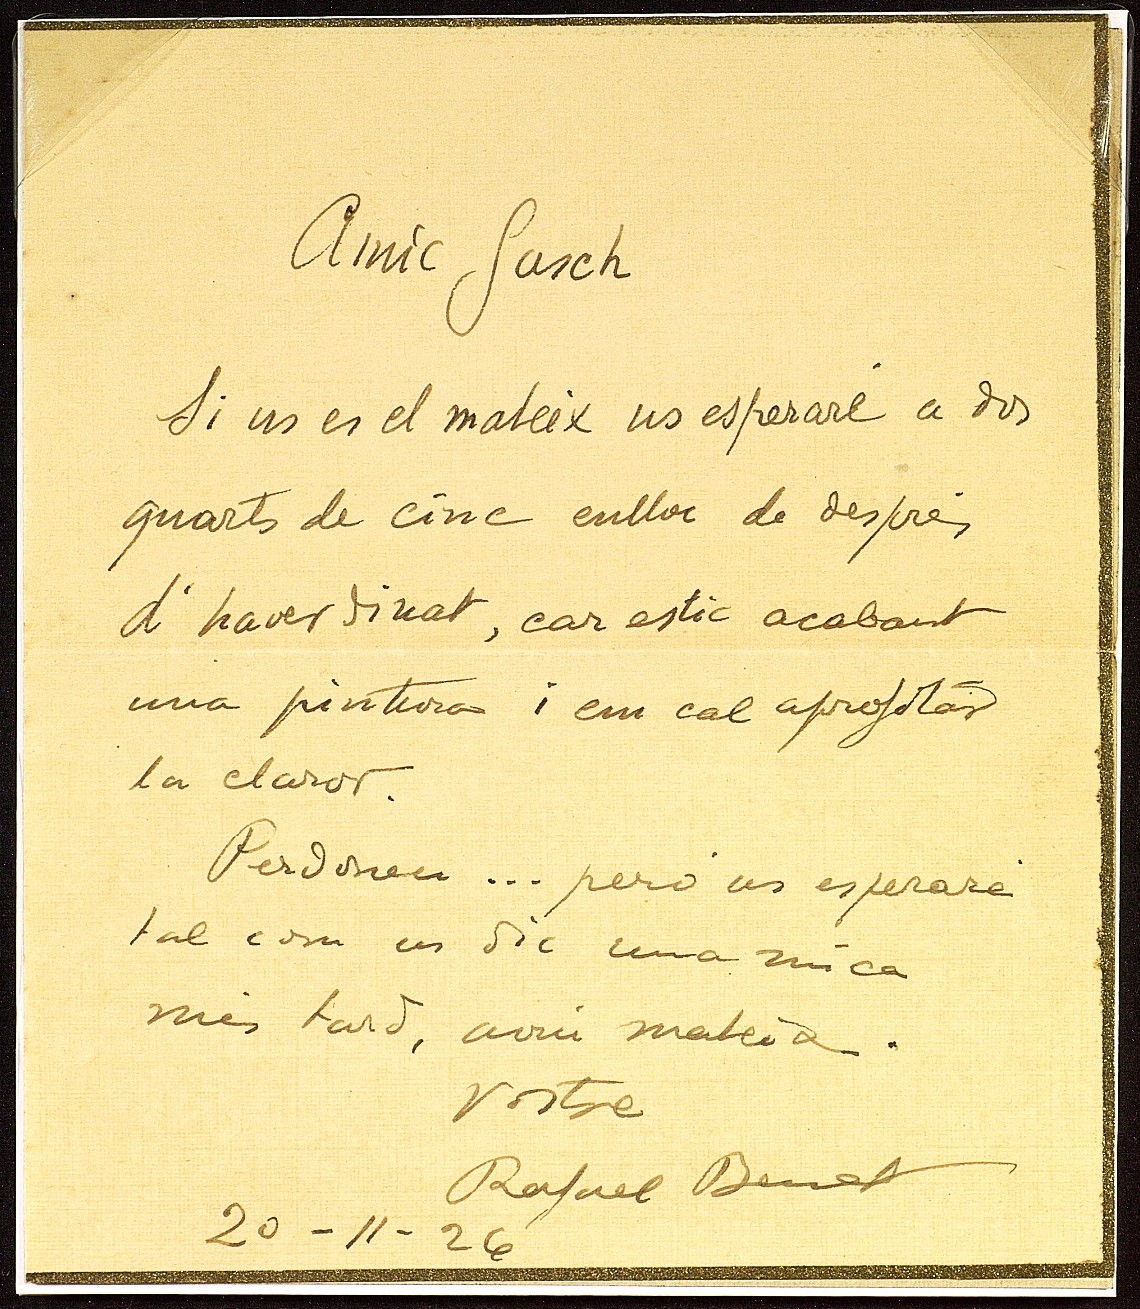 Amic Gasch
Si us es el mateix us esperaré a dos
quarts de cinc enlloc de després
d'haver dinat, car estic acabant
una pintura i em cal aprofitar
la claror.
Perdoneu ... peró us esperaré
tal com us dic una mica
més tard, avui mateix.
Vostre
Rafael Benet
20-11-26